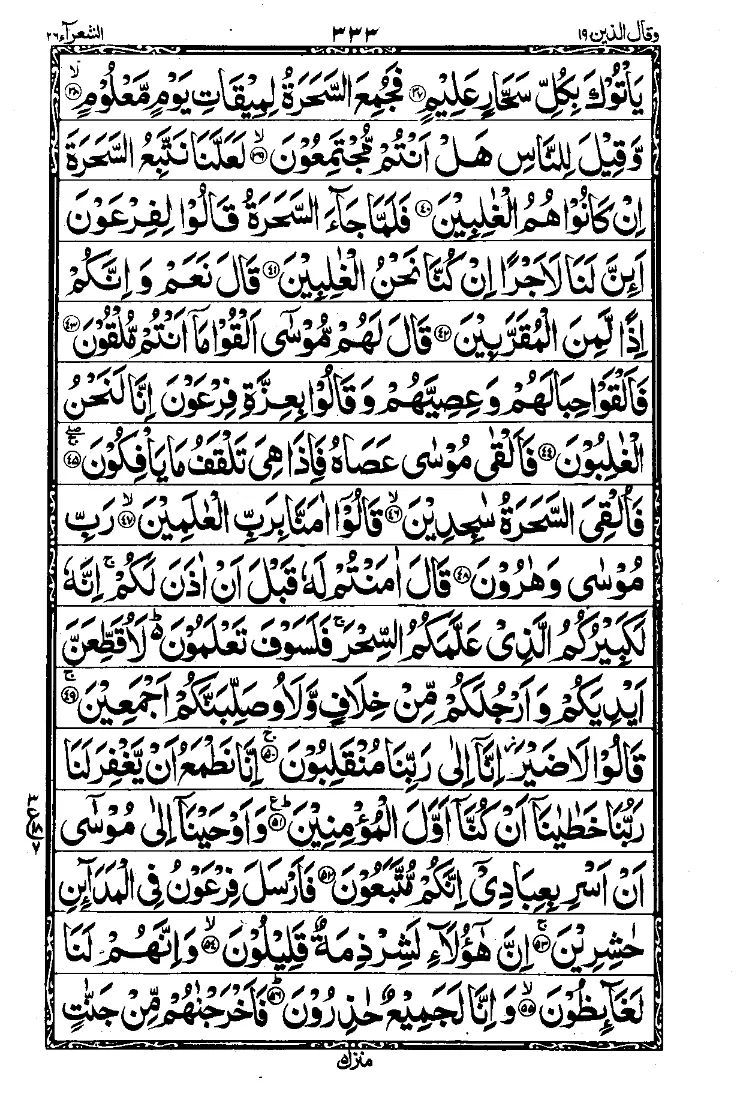 وقال الذین ۱۹ ۳۳۳ الشعرآء ۲۶
یَاْتُوْكَ بِكُلِّ سَحَّارٍ عَلِیْمٍ ﴿۳۷﴾ فَجُمِعَ السَّحَرَةُ لِمِیْقَاتِ یَوْمٍ مَّعْلُوْمٍ ۙ﴿۳۸﴾
وَّقِیْلَ لِلنَّاسِ هَلْ اَنْتُمْ مُّجْتَمِعُوْنَ ۙ﴿۳۹﴾ لَعَلَّنَا نَتَّبِعُ السَّحَرَةَ
اِنْ كَانُوْا هُمُ الْغٰلِبِیْنَ ﴿۴۰﴾ فَلَمَّا جَآءَ السَّحَرَةُ قَالُوْا لِفِرْعَوْنَ
اَئِنَّ لَنَا لَاَجْرًا اِنْ كُنَّا نَحْنُ الْغٰلِبِیْنَ ﴿۴۱﴾ قَالَ نَعَمْ وَ اِنَّكُمْ
اِذًا لَّمِنَ الْمُقَرَّبِیْنَ ﴿۴۲﴾ قَالَ لَهُمْ مُّوْسٰۤی اَلْقُوْا مَاۤ اَنْتُمْ مُّلْقُوْنَ ﴿۴۳﴾
فَاَلْقَوْا حِبَالَهُمْ وَ عِصِیَّهُمْ وَ قَالُوْا بِعِزَّةِ فِرْعَوْنَ اِنَّا لَنَحْنُ
الْغٰلِبُوْنَ ﴿۴۴﴾ فَاَلْقٰی مُوْسٰی عَصَاهُ فَاِذَا هِیَ تَلْقَفُ مَا یَاْفِكُوْنَ ۚۖ﴿۴۵﴾
فَاُلْقِیَ السَّحَرَةُ سٰجِدِیْنَ ۙ﴿۴۶﴾ قَالُوْۤا اٰمَنَّا بِرَبِّ الْعٰلَمِیْنَ ۙ﴿۴۷﴾ رَبِّ
مُوْسٰی وَ هٰرُوْنَ ﴿۴۸﴾ قَالَ اٰمَنْتُمْ لَهٗ قَبْلَ اَنْ اٰذَنَ لَكُمْ ۚ اِنَّهٗ
لَكَبِیْرُكُمُ الَّذِیْ عَلَّمَكُمُ السِّحْرَ ۚ فَلَسَوْفَ تَعْلَمُوْنَ ؕ لَاُقَطِّعَنَّ
اَیْدِیَكُمْ وَ اَرْجُلَكُمْ مِّنْ خِلَافٍ وَّ لَاُوصَلِّبَنَّكُمْ اَجْمَعِیْنَ ۚ﴿۴۹﴾
قَالُوْا لَا ضَیْرَ ؗ اِنَّاۤ اِلٰی رَبِّنَا مُنْقَلِبُوْنَ ۚ﴿۵۰﴾ اِنَّا نَطْمَعُ اَنْ یَّغْفِرَ لَنَا
رَبُّنَا خَطٰیٰنَاۤ اَنْ كُنَّاۤ اَوَّلَ الْمُؤْمِنِیْنَ ؕ﴿۵۱﴾ ع وَ اَوْحَیْنَاۤ اِلٰی مُوْسٰۤی
اَنْ اَسْرِ بِعِبَادِیْۤ اِنَّكُمْ مُّتَّبَعُوْنَ ﴿۵۲﴾ فَاَرْسَلَ فِرْعَوْنُ فِی الْمَدَآئِنِ
حٰشِرِیْنَ ۚ﴿۵۳﴾ اِنَّ هٰۤؤُلَآءِ لَشِرْذِمَةٌ قَلِیْلُوْنَ ۙ﴿۵۴﴾ وَ اِنَّهُمْ لَنَا
لَغَآئِظُوْنَ ۙ﴿۵۵﴾ وَ اِنَّا لَجَمِیْعٌ حٰذِرُوْنَ ؕ﴿۵۶﴾ فَاَخْرَجْنٰهُمْ مِّنْ جَنّٰتٍ